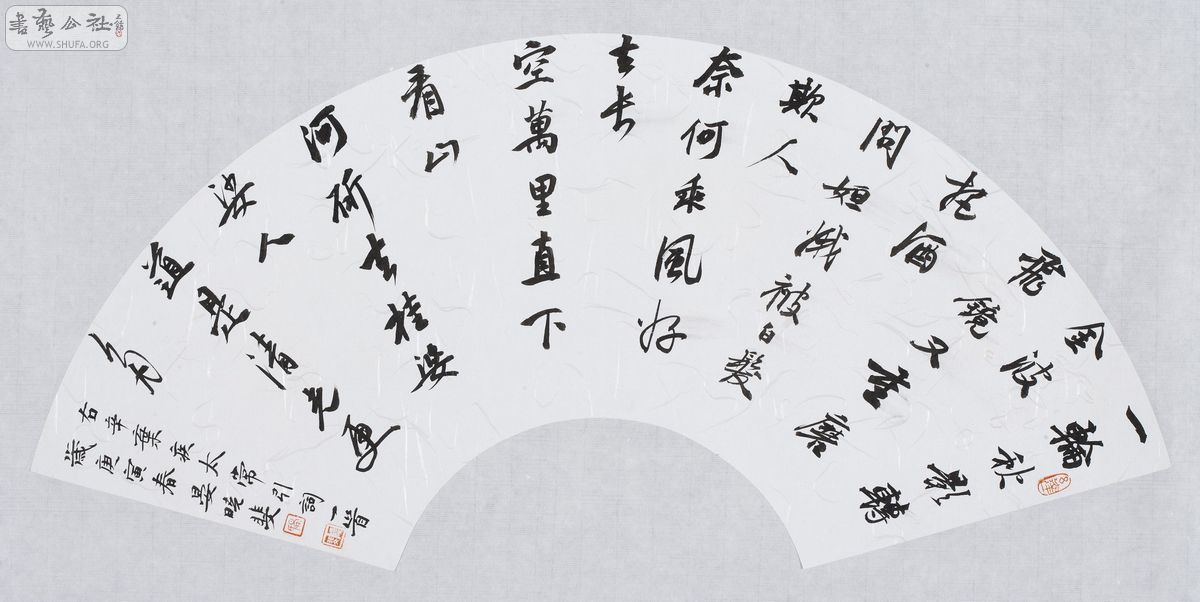 書藝公社
WWW.SHUFA.ORG
一輪秋影轉
金波
飛鏡又重磨
把酒
問姮娥被白髮
欺人
奈何乘風好
去長
空萬里直下
看山
河斫去桂婆
娑人
道是清光更
多
右辛棄疾太常引詞一首
歲庚寅春晏曉斐